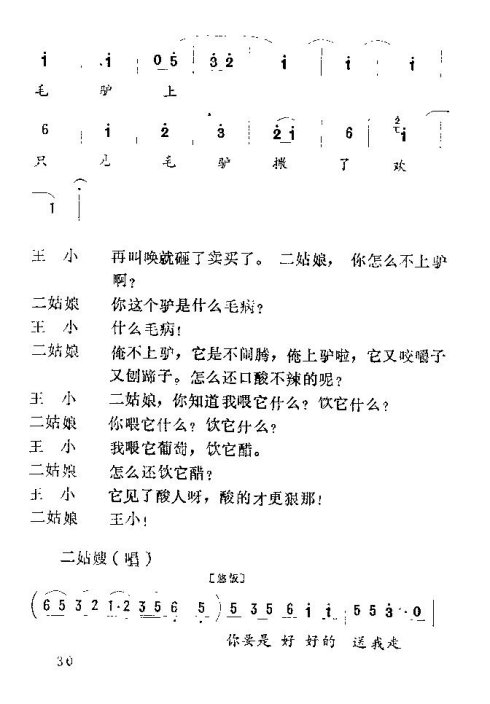 i · i 0 5 3 2 i i i
毛 驴 上
6 i 2 3 2·i 6 i
只 见 毛 驴 撒 了 欢
1
王 小 再叫唤就砸了卖买了。二姑娘，你怎么不上驴
啊？
二姑娘 你这个驴是什么毛病？
王 小 什么毛病！
二姑娘 俺不上驴，它是不闹腾，俺上驴啦，它又咬嚼子
又刨蹄子。怎么还口酸不辣的呢？
王 小 二姑娘，你知道我喂它什么？饮它什么？
二姑娘 你喂它什么？饮它什么？
王 小 我喂它葡萄，饮它醋。
二姑娘 怎么还饮它醋？
王 小 它见了酸人呀，酸的才更狠那！
二姑娘 王小！
二姑嫂（唱）
（6 5 3 2 1·2 3 5 6 5）5 3 5 3 5 6 i i 5 5 3·0
你要是 好 好的 送我走
30